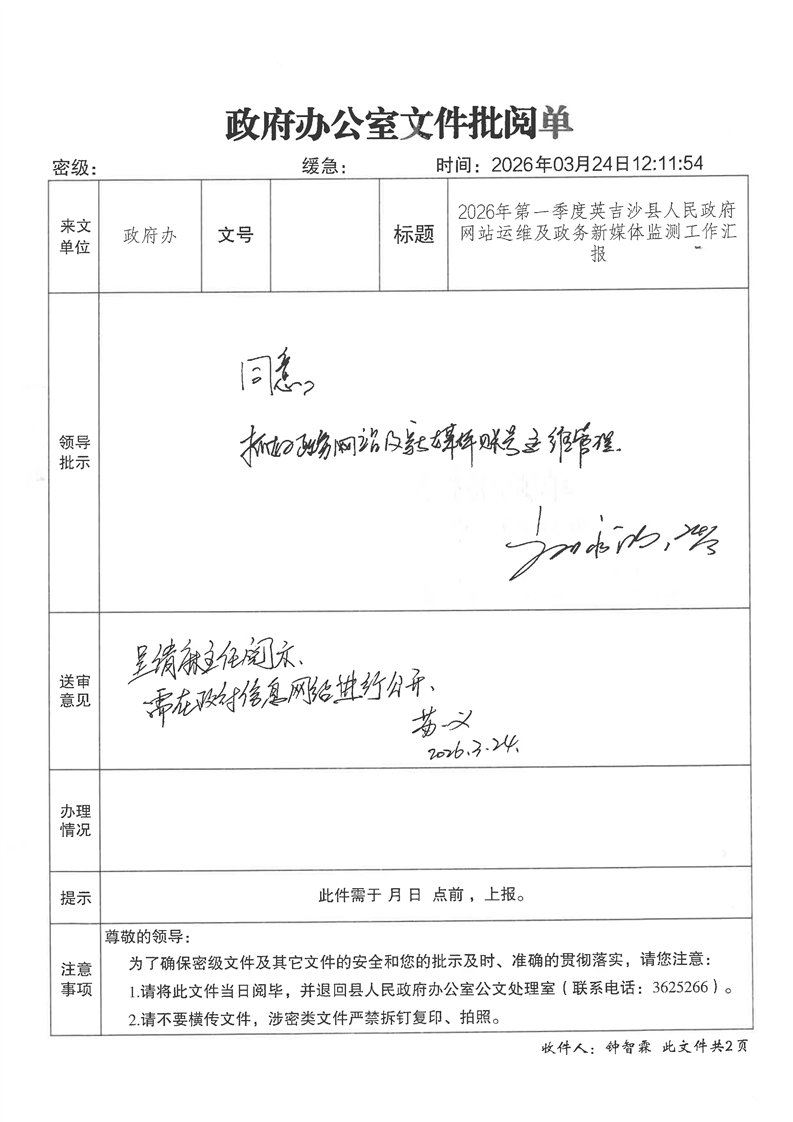 政府办公室文件批阅单
密级： 缓急： 时间：2026年03月24日12:11:54
来文单位 政府办 文号 标题 2026年第一季度英吉沙县人民政府
网站运维及政务新媒体监测工作汇
报
领导
批示
同意。
抓好政务网站及新媒体账号运维管理.
送审
意见
呈请 主任阅示、
需在政府信息网站进行公开、
苗义
2026.3.24.
办理
情况
提示 此件需于 月 日 点前，上报。
注意
事项
尊敬的领导：
为了确保密级文件及其它文件的安全和您的批示及时、准确的贯彻落实，请您注意：
1.请将此文件当日阅毕，并退回县人民政府办公室公文处理室（联系电话：3625266）。
2.请不要横传文件，涉密类文件严禁拆钉复印、拍照。
收件人：钟智霖 此文件共2页